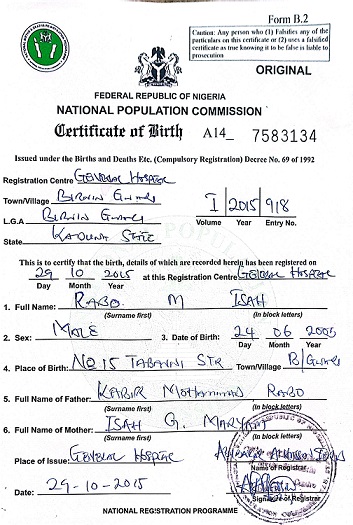 Form B.2
Caution: Any person who (1) Falsifies any of the particulars on this certificate or (2) uses a falsified certificate as true knowing it to be false is liable to prosecution
ORIGINAL
FEDERAL REPUBLIC OF NIGERIA
NATIONAL POPULATION COMMISSION
Certificate of Birth A14_ 7583134
Issued under the Births and Deaths Etc. (Compulsory Registration) Decree No. 69 of 1992
Registration Centre GENERAL HOSPITAL
Town/Village BIRNIN GWARI
I 2015 918
L.G.A BIRNIN GWARI
Volume Year Entry No.
State KADUNA STATE
This is to certify that the birth, details of which are recorded herein has been registered on
29 10 2015 at this Registration Centre GENERAL HOSPITAL
Day Month Year
1. Full Name: RABO M ISAH
(Surname first) (In block letters)
2. Sex: MALE 3. Date of Birth: 24 06 2005
Day Month Year
4. Place of Birth: NO 15 STR Town/Village B/GWARI
5. Full Name of Father: KABIR MOHAMMAD RABO
(Surname first) (In block letters)
6. Full Name of Mother: ISAH G. MARYAM
(Surname first) (In block letters)
Place of Issue: GENERAL HOSPITAL
Name of Registrar
Date: 29-10-2015
Signature of Registrar
NATIONAL REGISTRATION PROGRAMME